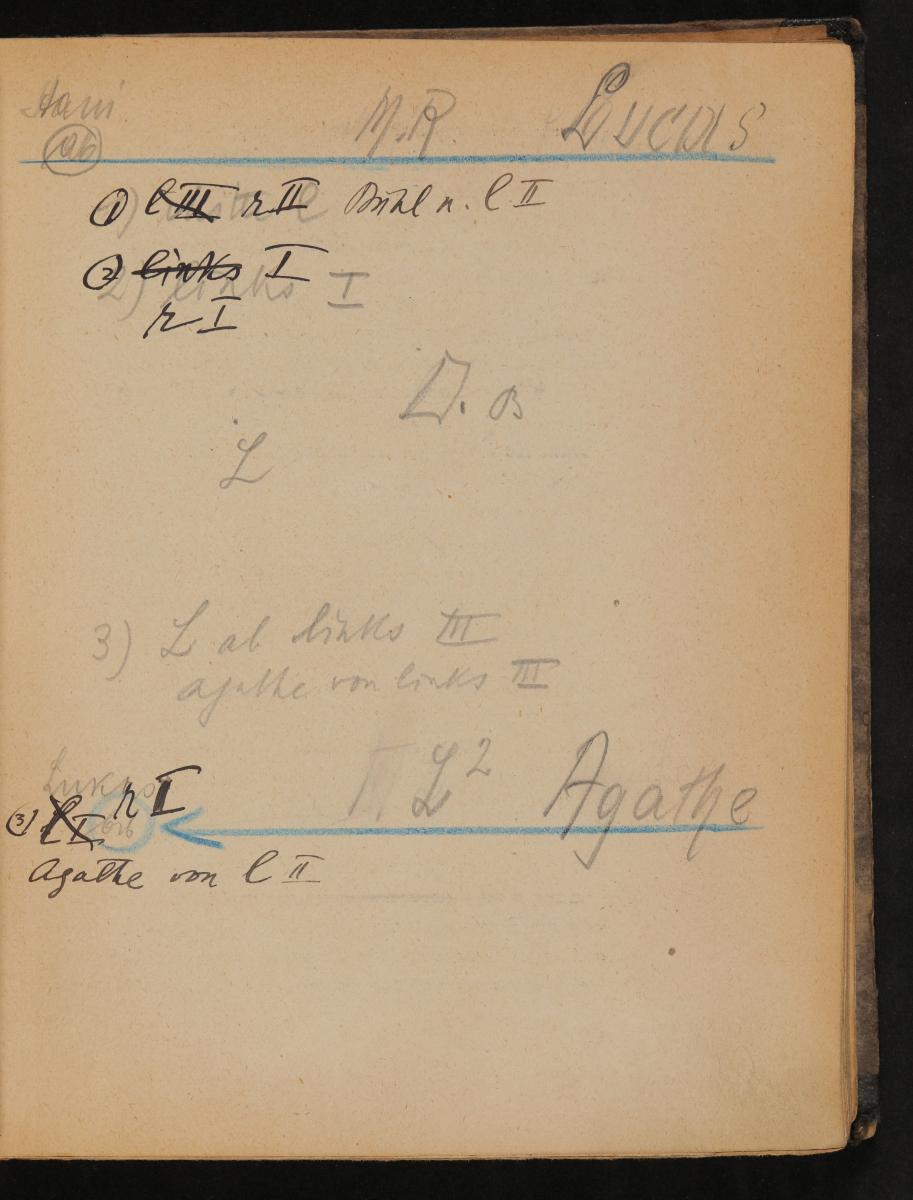 Hani M. R Lucas
ab
① l III r II Bühl n. l II
② links I
2) links I
r I
D. B
L
3) L ab links III
agathe von links III
Lukas r I L² Agathe
③ l I ab
Agathe von l II